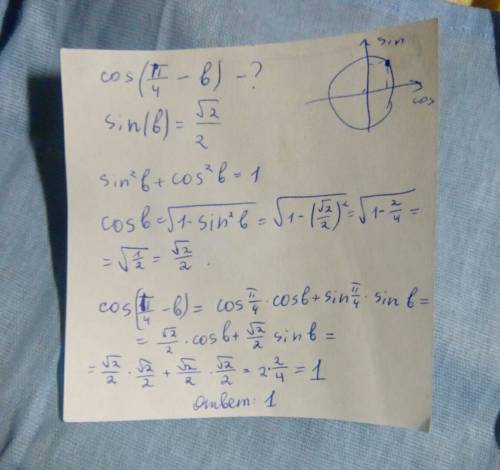 cos(π/4 - b) - ?
sin
cos
sin(b) = √2/2
sin²b + cos²b = 1
cosb = √(1-sin²b) = √(1-(√2/2)²) = √(1-2/4) =
= √(1/2) = √2/2 .
cos(π/4 - b) = cos π/4 · cosb + sin π/4 · sin b =
= √2/2 · cosb + √2/2 sinb =
= √2/2 · √2/2 + √2/2 · √2/2 = 2·2/4 = 1
Ответ: 1